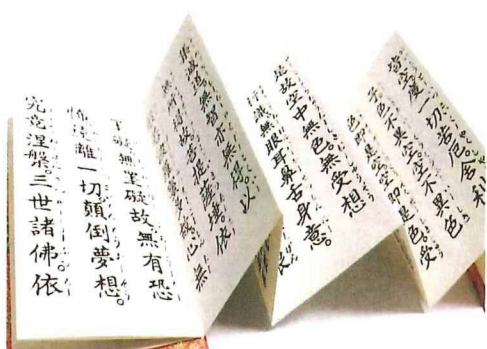 皆空。度一切苦厄。舎利
子。色不異空。空不異色。
色即是空。空即是色。受
是故空中無色。無受想
行識。無眼耳鼻舌身意。
集滅道。無智亦無得。以
無所得故。菩提薩埵。依
心無
礙無罣礙故。無有恐
怖。遠離一切顛倒夢想。
究竟涅槃。三世諸佛。依